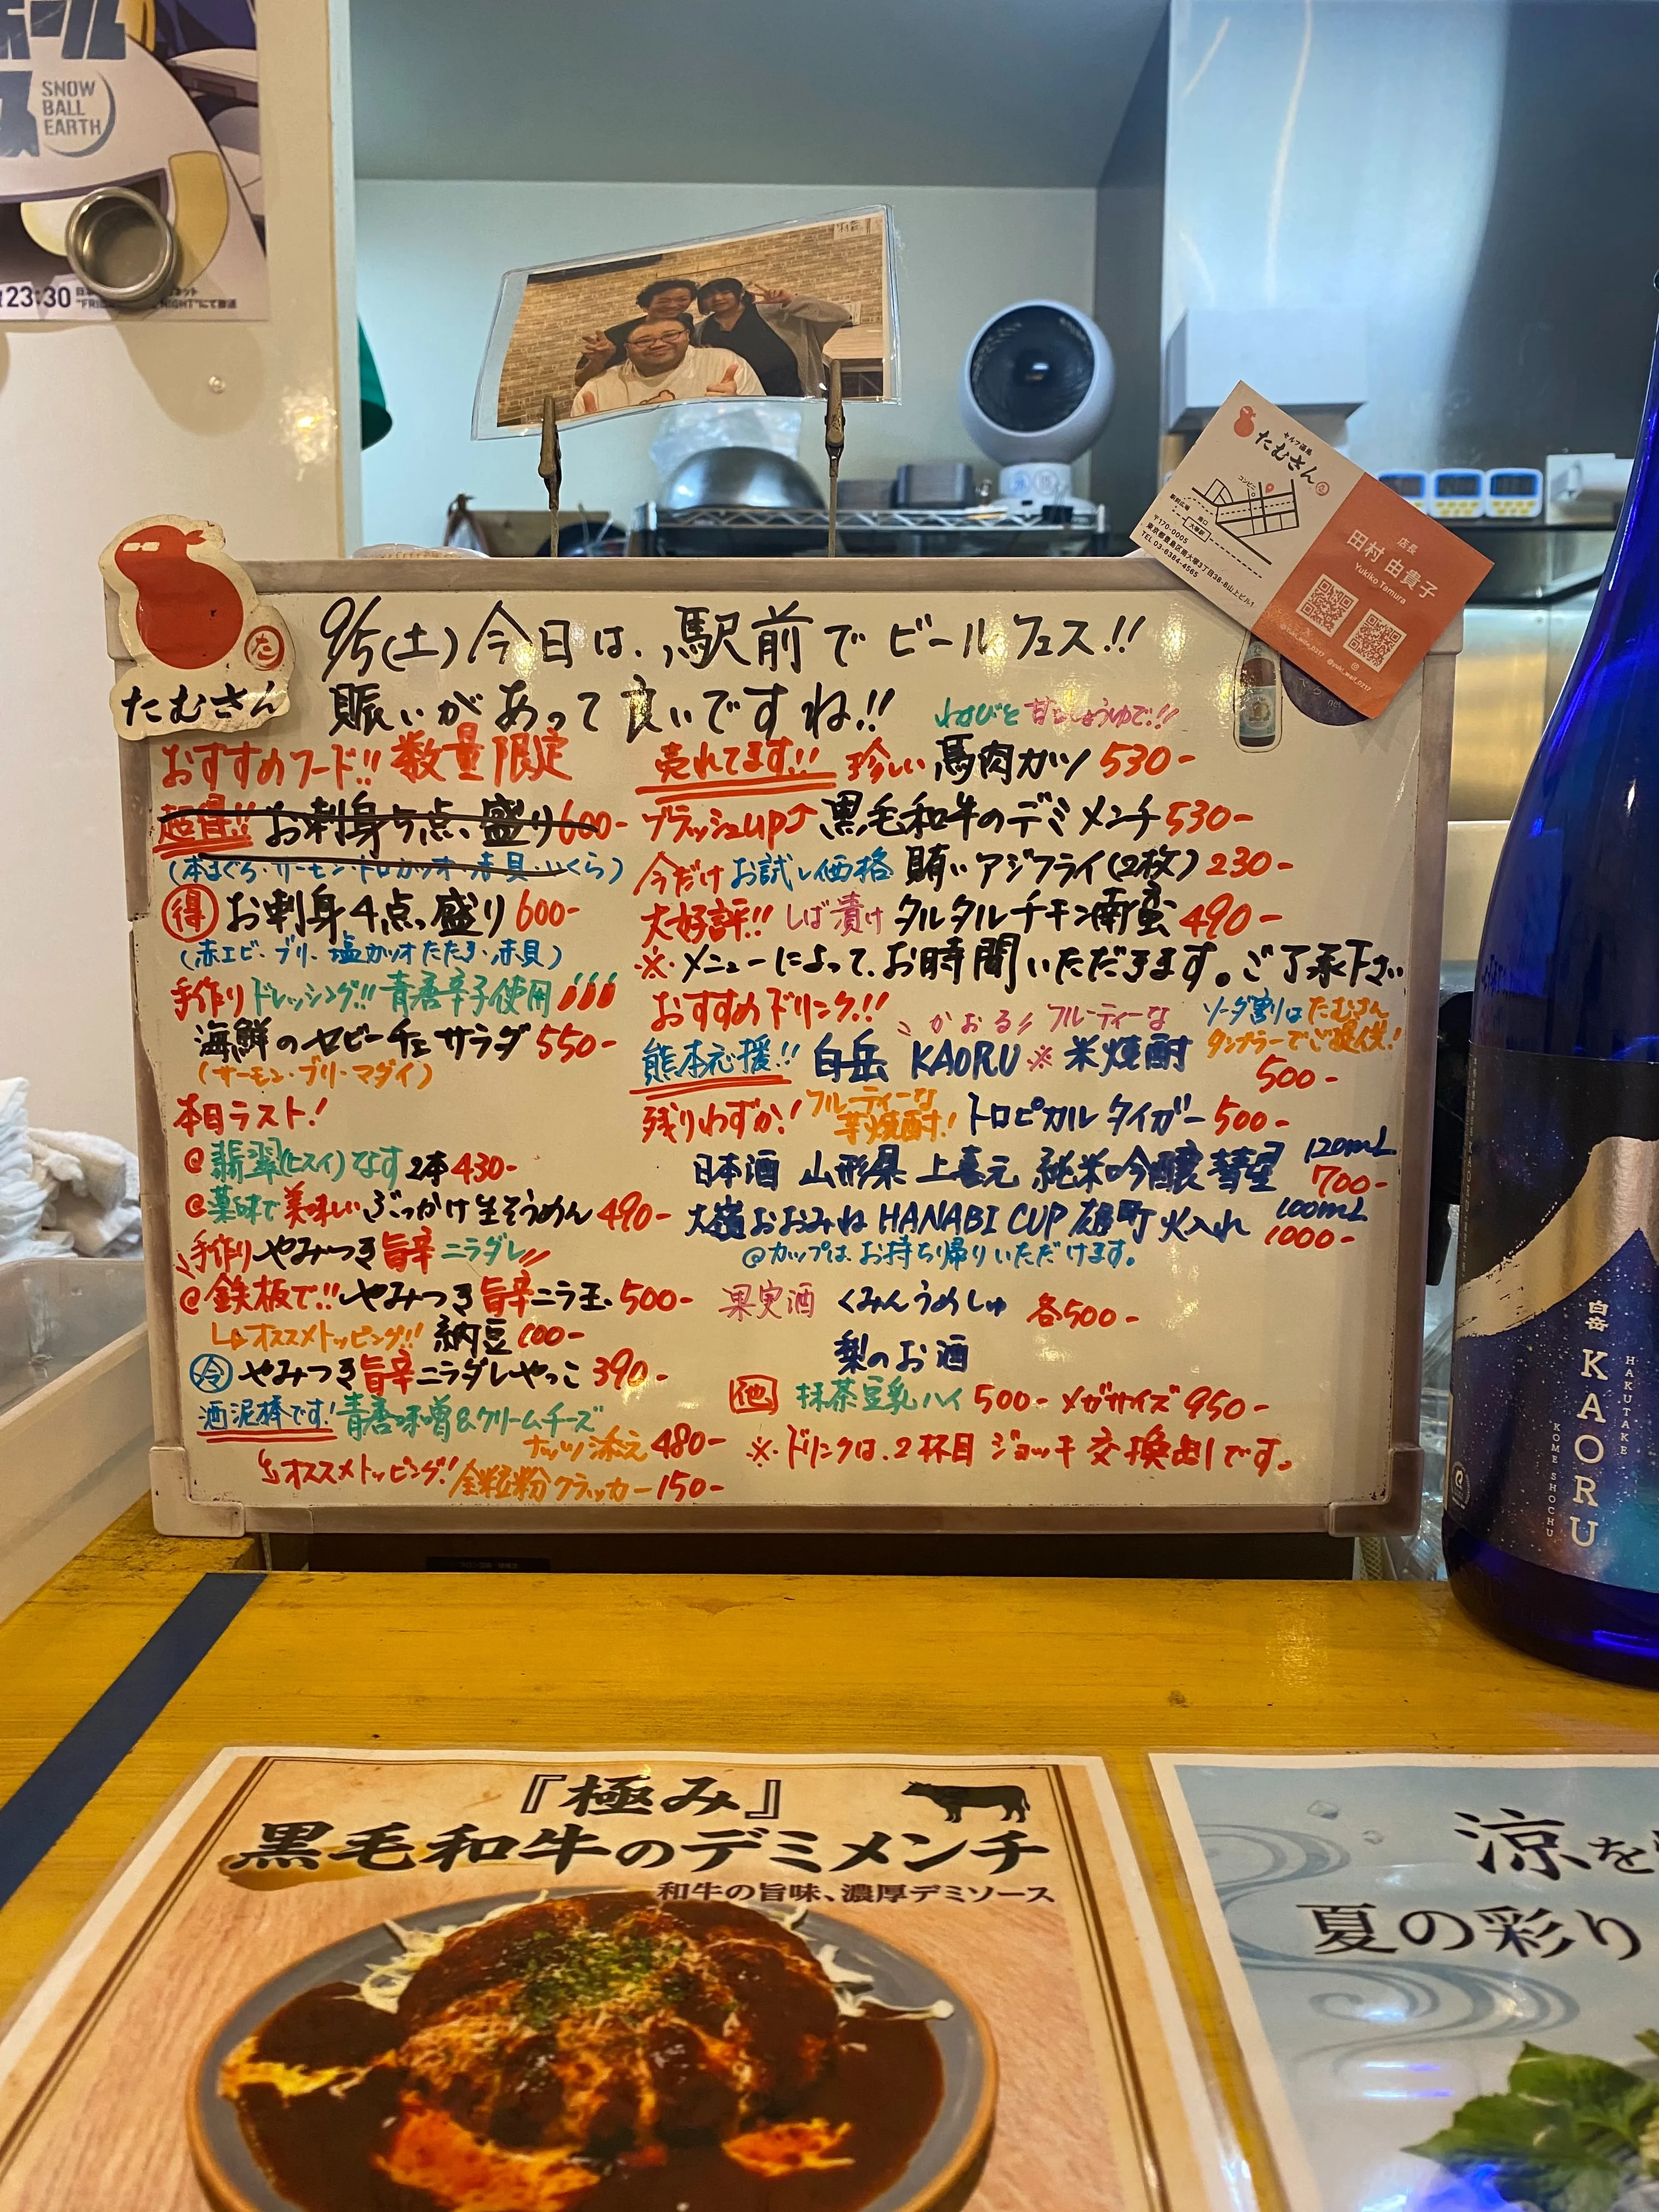 SNOW
BALL
EARTH
23:30
セルフ酒場
たむさん
コンビニ
〒170-0005
東京都豊島区南大塚3丁目38-8山上ビル1
TEL 03-6384-4565
店長
田村 由貴子
Yukiko Tamura
たむさん
9/5(土)今日は、駅前でビールフェス!!
賑いがあって良いですね!!
おすすめフード!! 数量限定
超得!! お刺身5点盛り600-
(本まぐろ・サーモン・トロカツオ・赤貝・いくら)
得 お刺身4点盛り600-
(赤エビ・ブリ・塩カツオたたき・赤貝)
手作りドレッシング!! 青唐辛子使用
海鮮のセビーチェサラダ550-
(サーモン・ブリ・マダイ)
本日ラスト!
@翡翠(ヒスイ)なす2本430-
@薬味で美味しいぶっかけ生そうめん490-
手作りやみつき旨辛ニラダレ
@鉄板で!!やみつき旨辛ニラ玉500-
オススメトッピング!! 納豆100-
冷 やみつき旨辛ニラダレやっこ390-
酒泥棒です! 青唐味噌&クリームチーズ
ナッツ添え480-
オススメトッピング! 全粒粉クラッカー150-
わさびと甘しょうゆで!!
売れてます!! 珍しい馬肉カツ530-
ブラッシュup 黒毛和牛のデミメンチ530-
今だけお試し価格 賄いアジフライ(2枚)230-
大好評!! しば漬けタルタルチキン南蛮490-
※メニューによって、お時間いただきます。ご了承下さい
おすすめドリンク!!
かおる フルーティーな
ソーダ割りはたむさん
タンブラーでご提供!
熊本応援!! 白岳 KAORU ※米焼酎
500-
残りわずか! フルーティーな芋焼酎! トロピカルタイガー500-
日本酒 山形県 上喜元 純米吟醸 彗星 120mL
700-
大嶺おおみね HANABI CUP 雄町 火入れ 100mL
1000-
@カップは、お持ち帰りいただけます。
果実酒 くみんうめしゅ 各500-
梨のお酒
他 抹茶豆乳ハイ500- メガサイズ950-
※ドリンクは、2杯目ジョッキ交換出しです。
白岳
KAORU
HAKUTAKE
KOME SHOCHU
『極み』
黒毛和牛のデミメンチ
和牛の旨味、濃厚デミソース
涼を
夏の彩り